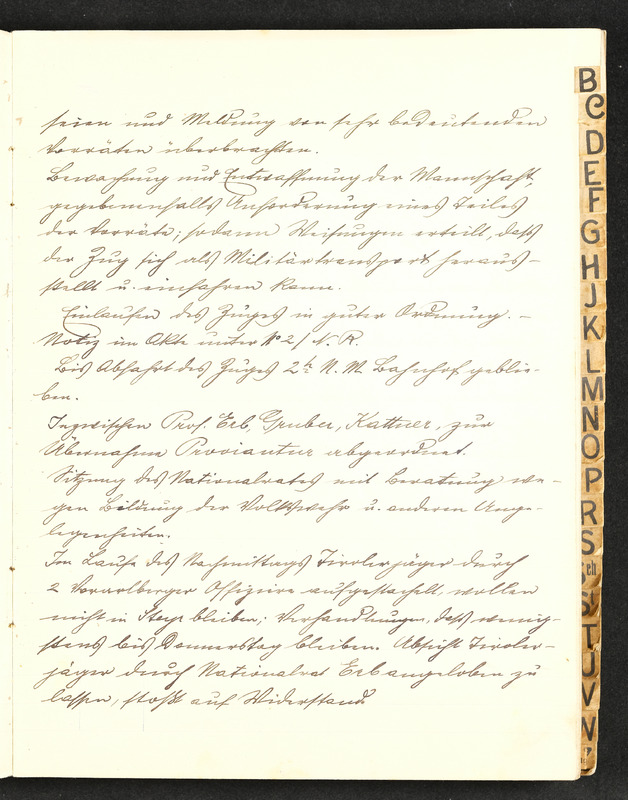 seien und Meldung von sehr bedeutenden
Vorräten überbrachten.
Bewachung und Entwaffnung der Mannschaft,
gegebenenfalls Anforderung eines Teiles
der Vorräte; sodann Weisungen erteilt, daß
der Zug sich als Militärtransport heraus-
stellt u. einfahren kann.
Einlaufen des Zuges in guter Ordnung. -
Notiz im Akte unter No 2/N. R.
Bis Abfahrt des Zuges 2h N. M. Bahnhof geblie-
ben.
Inzwischen Prof. Erb, Gruber, Kattner, zur
Übernahme Proviantur abgeordnet.
Sitzung des Nationalrates mit Beratung we-
gen Bildung der Volkswehr u. anderen Ange-
legenheiten.
Im Laufe des Nachmittags Tirolerjäger durch
2 Vorarlberger Offiziere aufgestachelt, wollen
nicht in Steyr bleiben; Verhandlungen, daß wenig-
stens bis Donnerstag bleiben. Absicht Tiroler-
jäger durch Nationalrat Erb angeloben zu
lassen, stoßt auf Widerstand
B
C
D
E
F
G
H
J
K
L
M
N
O
P
R
S
Sch
St
T
U
V
W